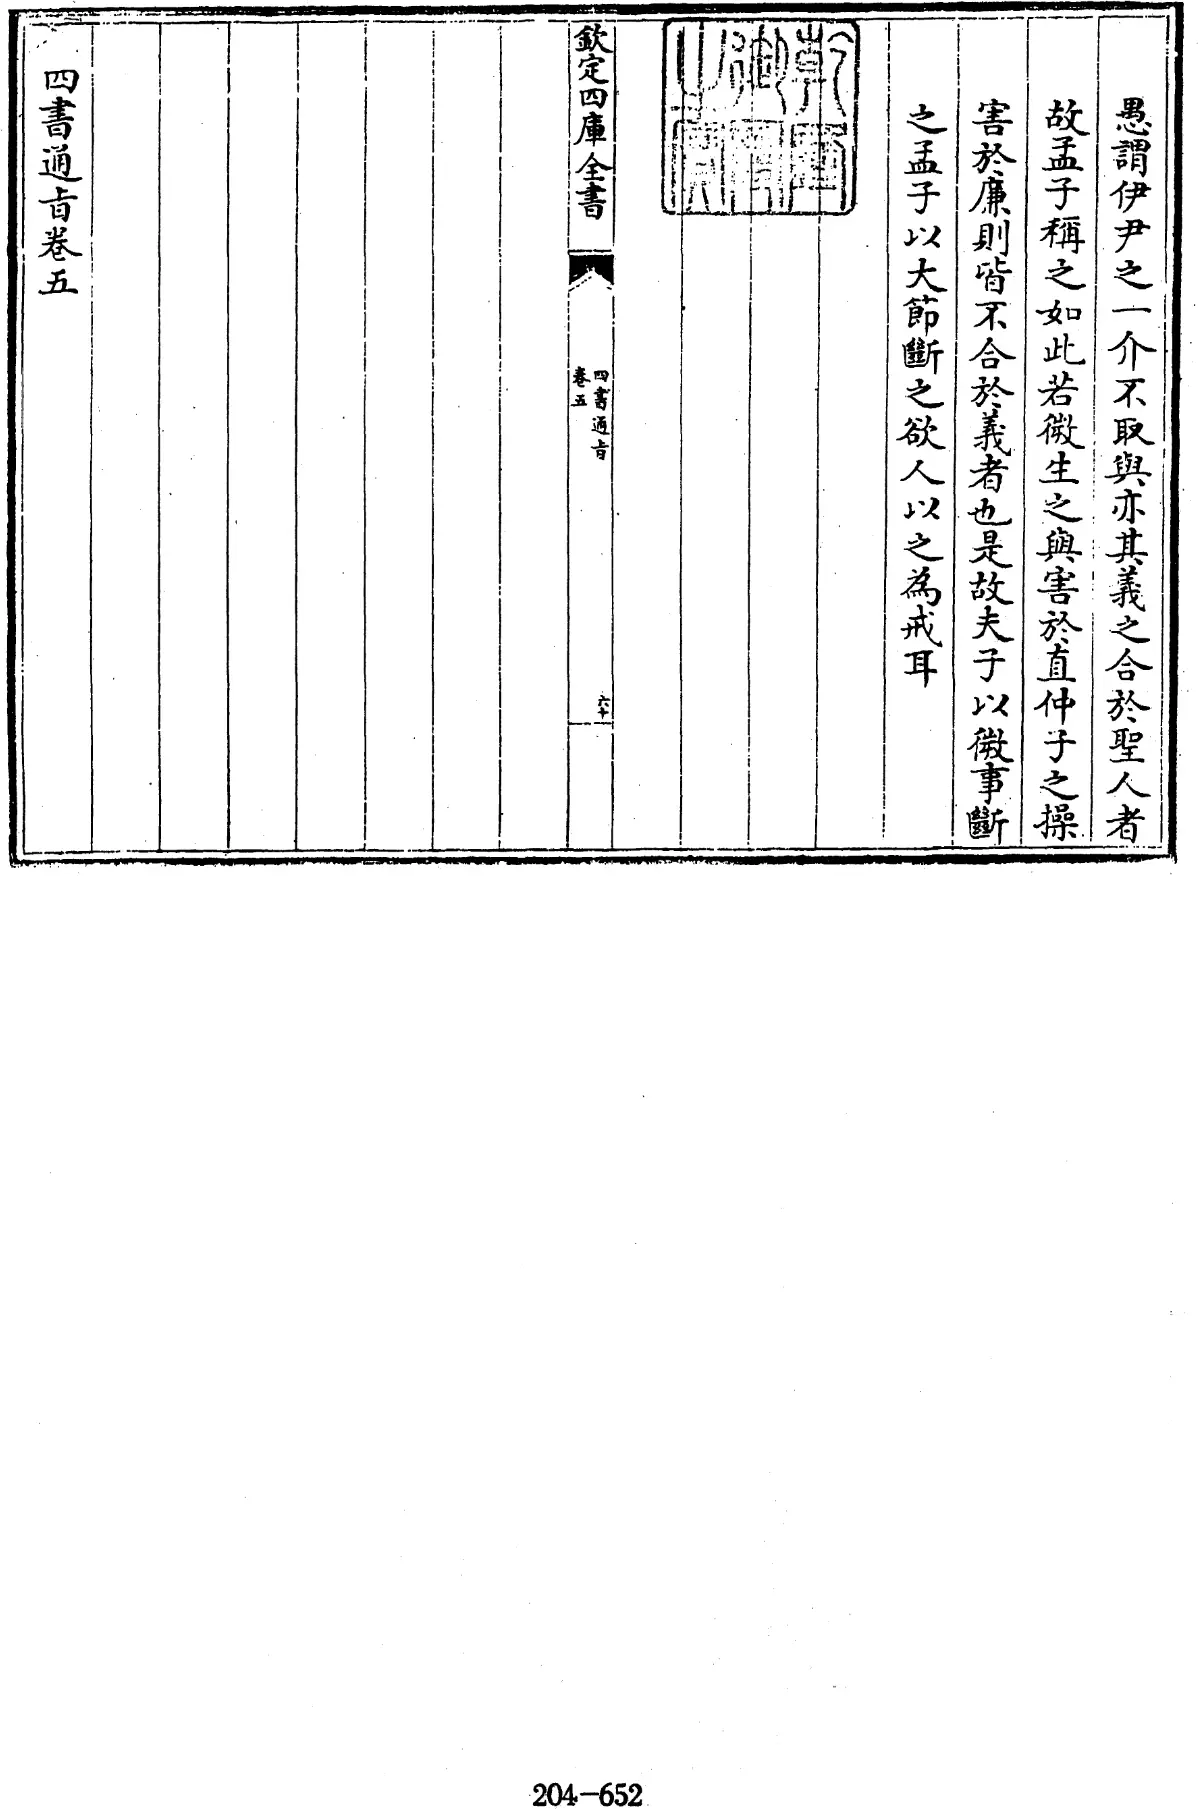 愚謂伊尹之一介不取與亦其義之合於聖人者
故孟子稱之如此若微生之與害於直仲子之操
害於廉則皆不合於義者也是故夫子以微事斷
之孟子以大節斷之欲人以之為戒耳
欽定四庫全書
四書通旨
卷五
六十
四書通旨卷五
204-652